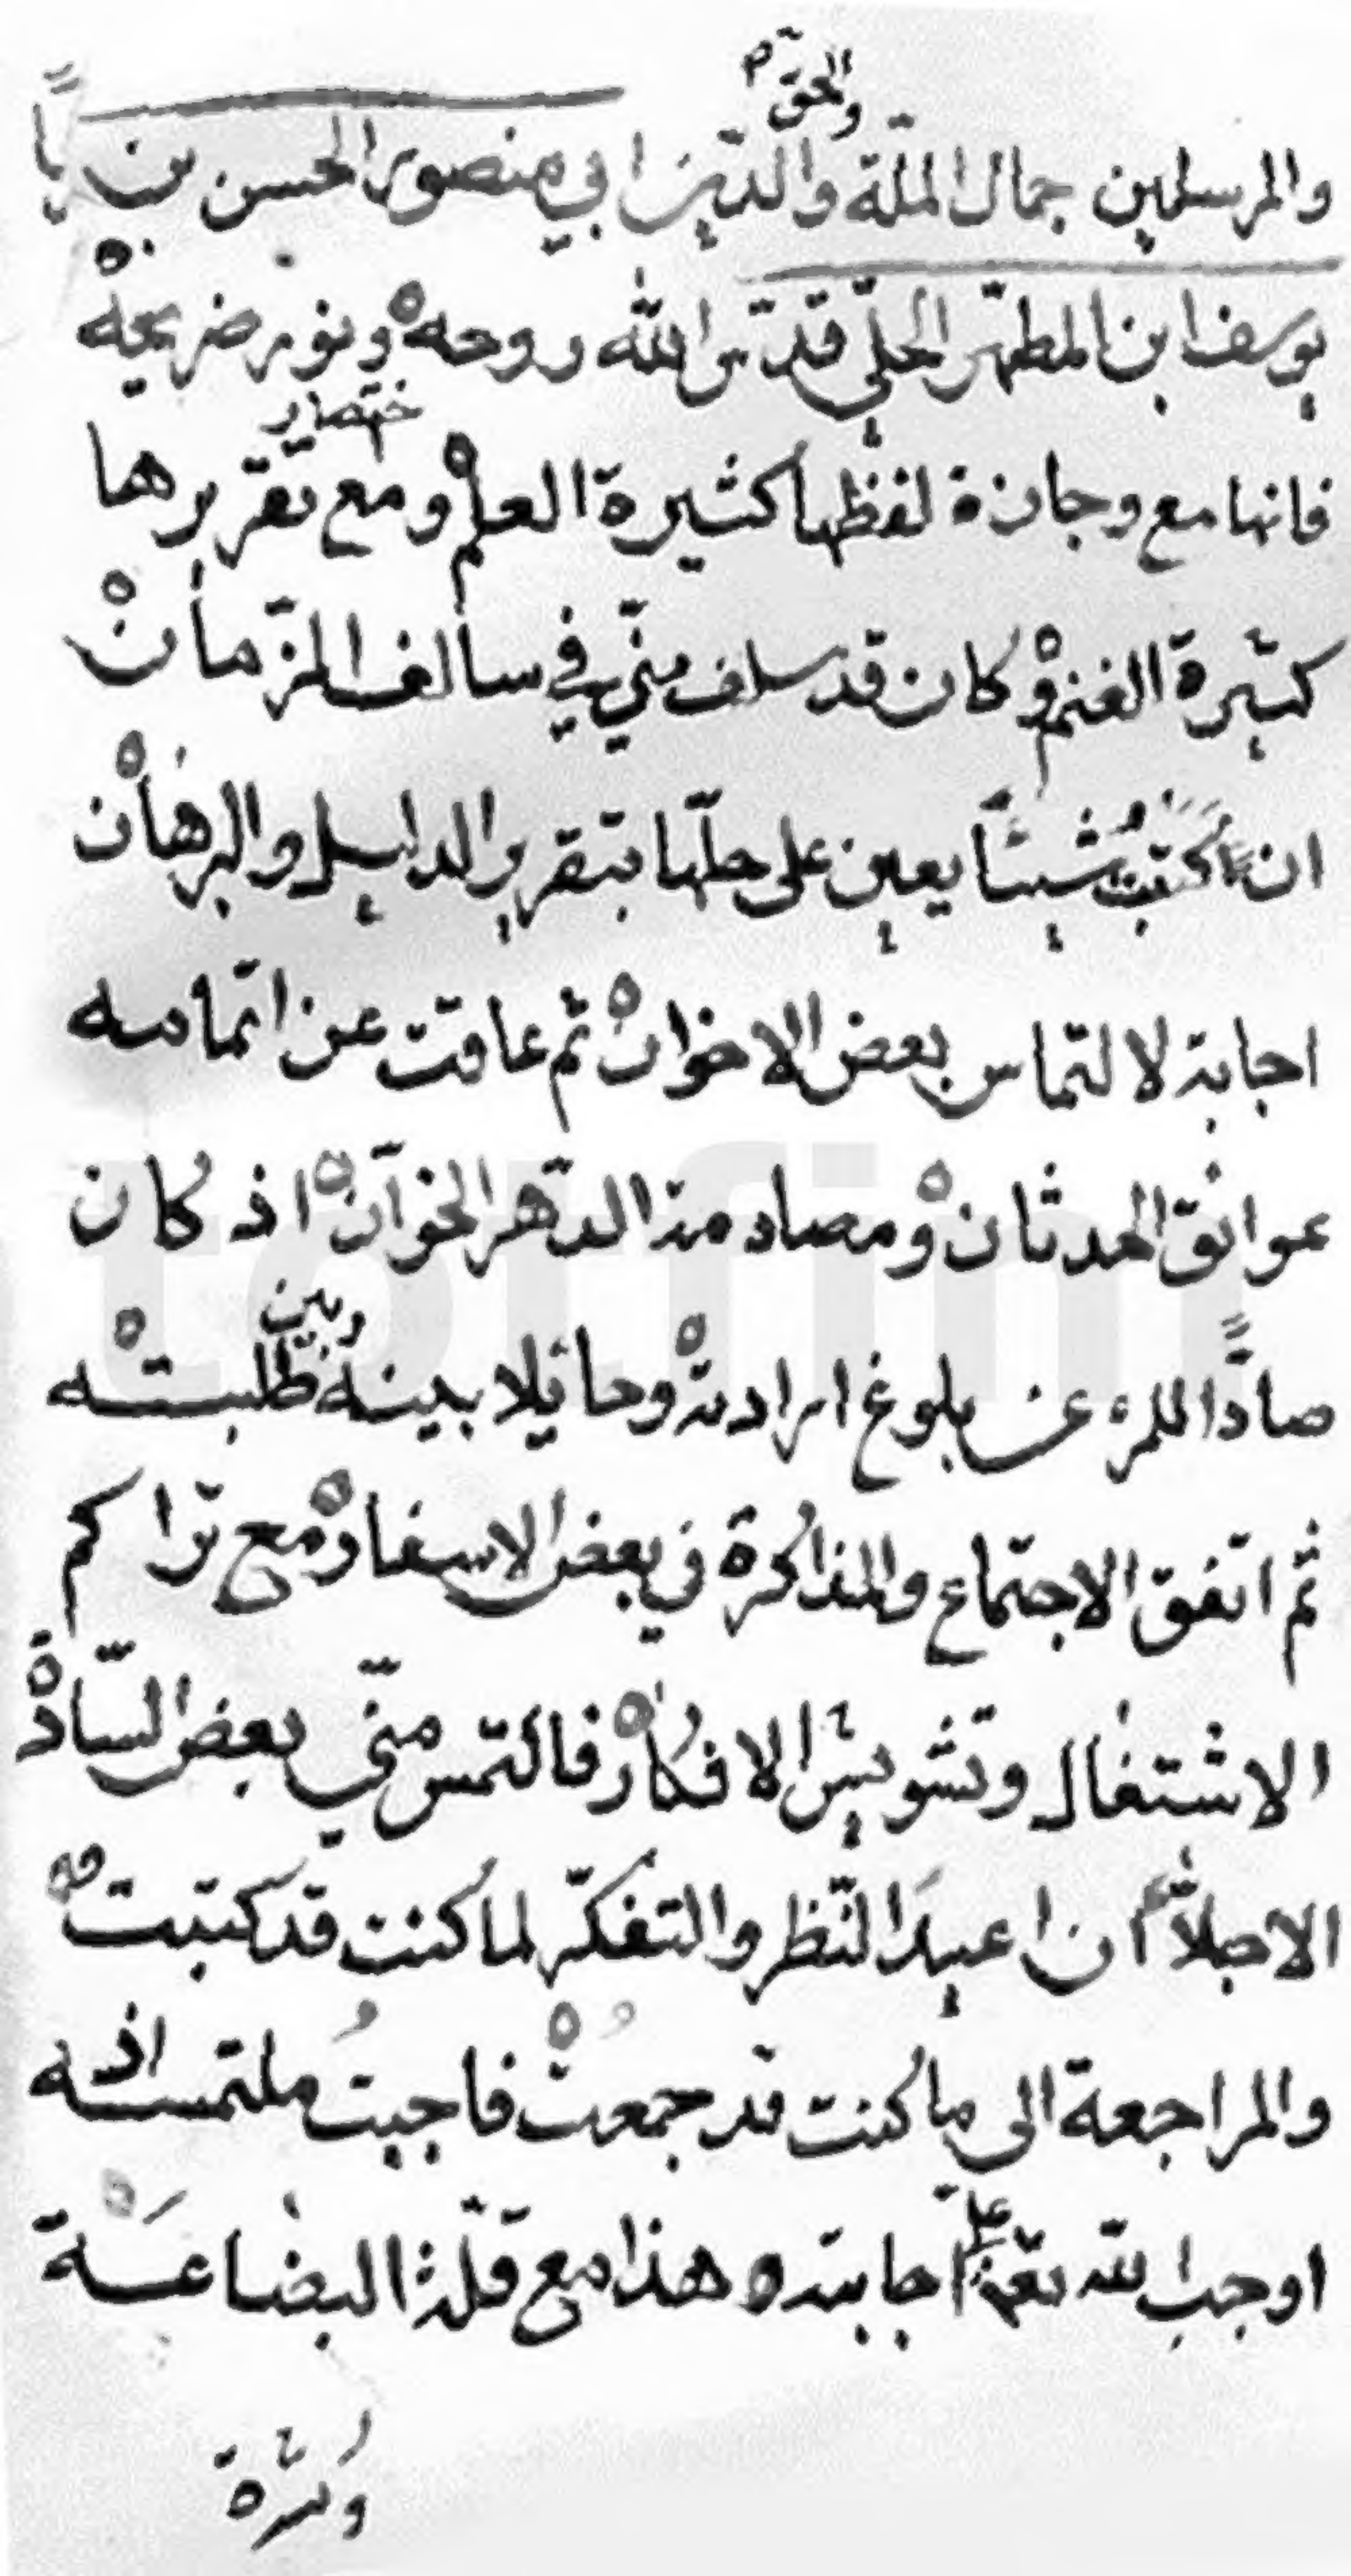 والحق
والمرسلين جمال الملة والدّين ابي منصور الحسن بن
يوسف ابن المطهّر الحلّي قدّس الله روحه ونور ضريحه
فانها مع وجازة لفظها كثيرة العلم ومع اختصار تقريرها
كبيرة الغنم وكان قد سلف منّي في سالف الزّمان
ان اكتب شيئاً يعين على حلّها بتقرير الدليل والبرهان
اجابة لالتماس بعض الاخوان ثم عاقت عن اتمامه
عوائق الحدثان ومصادمة الدّهر الخوّان اذ كان
صادّاً للمرء عن بلوغ ارادته وحائلا بينه وبين طلبته
ثم اتفق الاجتماع والمذاكرة في بعض الاسفار مع تراكم
الاشتغال وتشويش الافكار فالتمس منّي بعض السّادة
الاجلاّء ان اعيد النّظر والتفكّر لما كنت قد كتبت
والمراجعة الى ما كنت قد جمعت فاجبتُ ملتمسه اذ
اوجب الله تعالى عليّ اجابته هذا مع قلة البضاعة
وكثرة